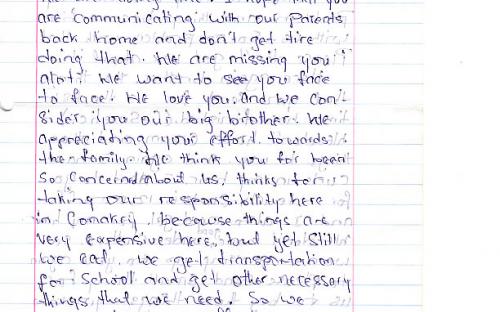 are communicating with our parents
back home and don't get tire
doing that. We are missing you
alot. We want to see you face
to face. We love you. and we con
sider you our big brother. We
appreciating your effort towards
the family. We think you for been
so concernd about us, thinks for
taking our responsibility here
in Conakry, because things are
very expensive here, but yet still
we eat, we get transportation
for school and get other necessery
things that we need. So we